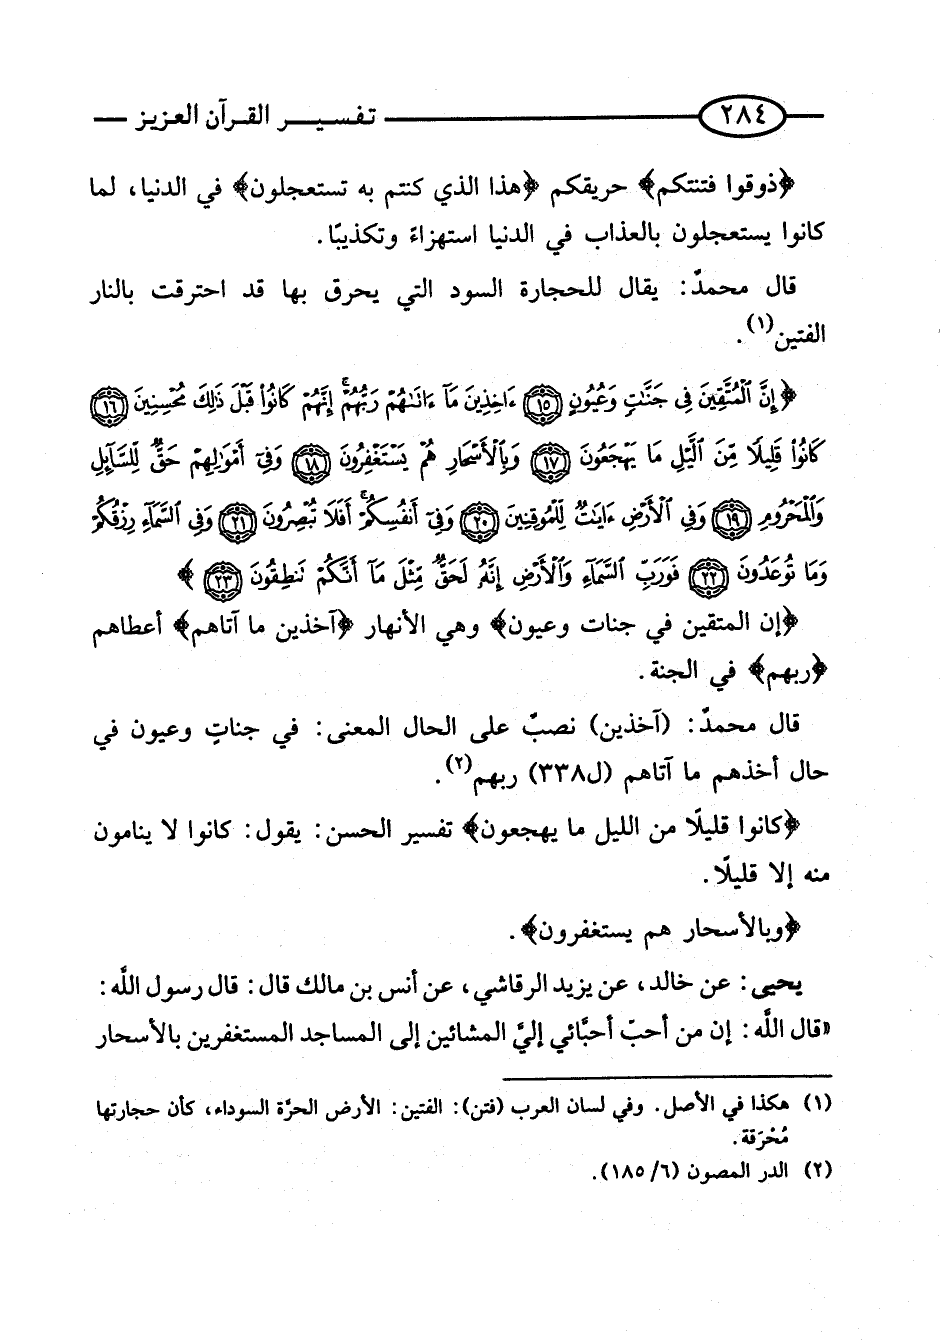 ٢٨٤ تفسير القرآن العزيز
﴿ذوقوا فتنتكم﴾ حريقكم ﴿هذا الذي كنتم به تستعجلون﴾ في الدنيا، لما
كانوا يستعجلون بالعذاب في الدنيا استهزاءً وتكذيبًا.
قال محمدٌ: يقال للحجارة السود التي يحرق بها قد احترقت بالنار
الفتين(١).
﴿إِنَّ ٱلْمُتَّقِينَ فِى جَنَّٰتٍ وَعُيُونٍ ١٥ ءَاخِذِينَ مَآ ءَاتَىٰهُمْ رَبُّهُمْ ۚ إِنَّهُمْ كَانُوا۟ قَبْلَ ذَٰلِكَ مُحْسِنِينَ ١٦
كَانُوا۟ قَلِيلًا مِّنَ ٱلَّيْلِ مَا يَهْجَعُونَ ١٧ وَبِٱلْأَسْحَارِ هُمْ يَسْتَغْفِرُونَ ١٨ وَفِىٓ أَمْوَٰلِهِمْ حَقٌّ لِّلسَّآئِلِ
وَٱلْمَحْرُومِ ١٩ وَفِى ٱلْأَرْضِ ءَايَٰتٌ لِّلْمُوقِنِينَ ٢٠ وَفِىٓ أَنفُسِكُمْ ۚ أَفَلَا تُبْصِرُونَ ٢١ وَفِى ٱلسَّمَآءِ رِزْقُكُمْ
وَمَا تُوعَدُونَ ٢٢ فَوَرَبِّ ٱلسَّمَآءِ وَٱلْأَرْضِ إِنَّهُۥ لَحَقٌّ مِّثْلَ مَآ أَنَّكُمْ تَنطِقُونَ ٢٣﴾
﴿إن المتقين في جنات وعيون﴾ وهي الأنهار ﴿آخذين ما آتاهم﴾ أعطاهم
﴿ربهم﴾ في الجنة.
قال محمدٌ: (آخذين) نصبٌ على الحال المعنى: في جناتٍ وعيون في
حال أخذهم ما آتاهم (ل٣٣٨) ربهم(٢).
﴿كانوا قليلًا من الليل ما يهجعون﴾ تفسير الحسن: يقول: كانوا لا ينامون
منه إلا قليلًا.
﴿وبالأسحار هم يستغفرون﴾.
يحيى: عن خالد، عن يزيد الرقاشي، عن أنس بن مالك قال: قال رسول اللَّه:
«قال اللَّه: إن من أحبّ أحبَّائي إليَّ المشائين إلى المساجد المستغفرين بالأسحار
(١) هكذا في الأصل. وفي لسان العرب (فتن): الفتين: الأرض الحرَّة السوداء، كأن حجارتها
مُحْرَقة.
(٢) الدر المصون (٦/ ١٨٥).